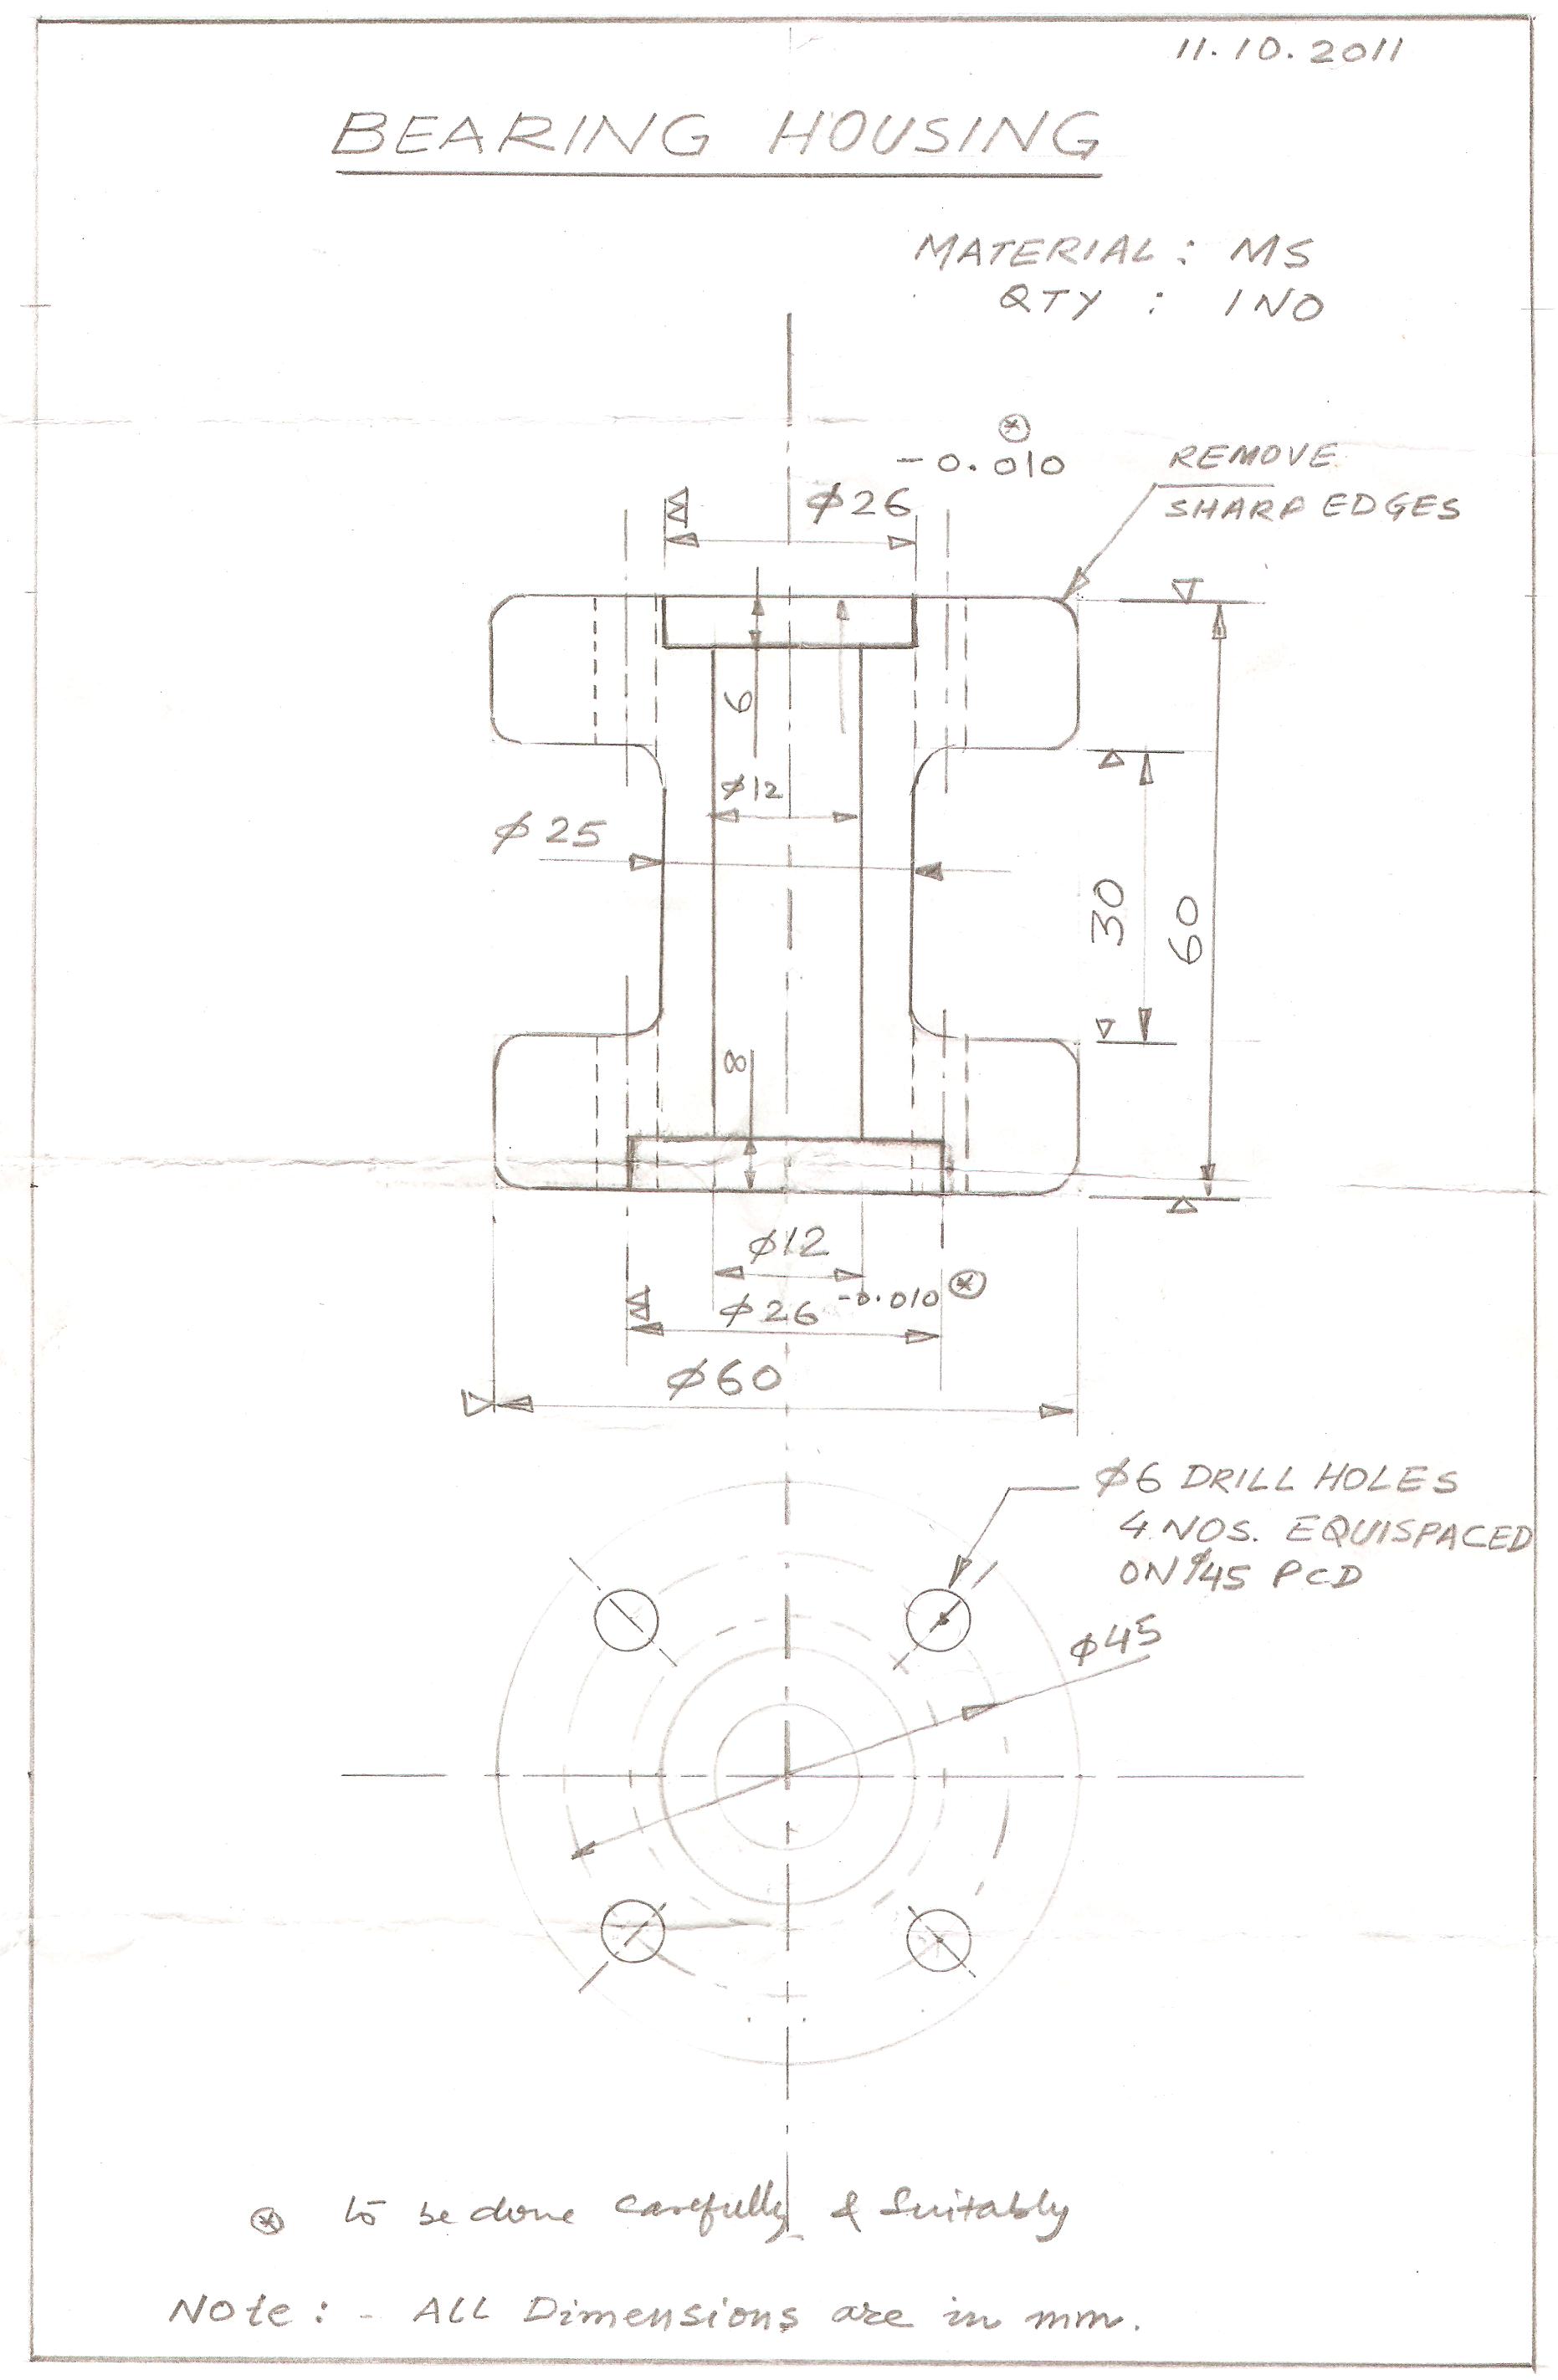 11.10.2011
BEARING HOUSING
MATERIAL : MS
QTY : 1 NO
-0.010 ⊛
ϕ26
REMOVE
SHARP EDGES
6
ϕ12
ϕ25
30
60
8
ϕ12
ϕ26 -0.010 ⊛
ϕ60
ϕ6 DRILL HOLES
4 NOS. EQUISPACED
ON ϕ45 PCD
ϕ45
⊛ to be done carefully & Suitably
Note : - ALL Dimensions are in mm.